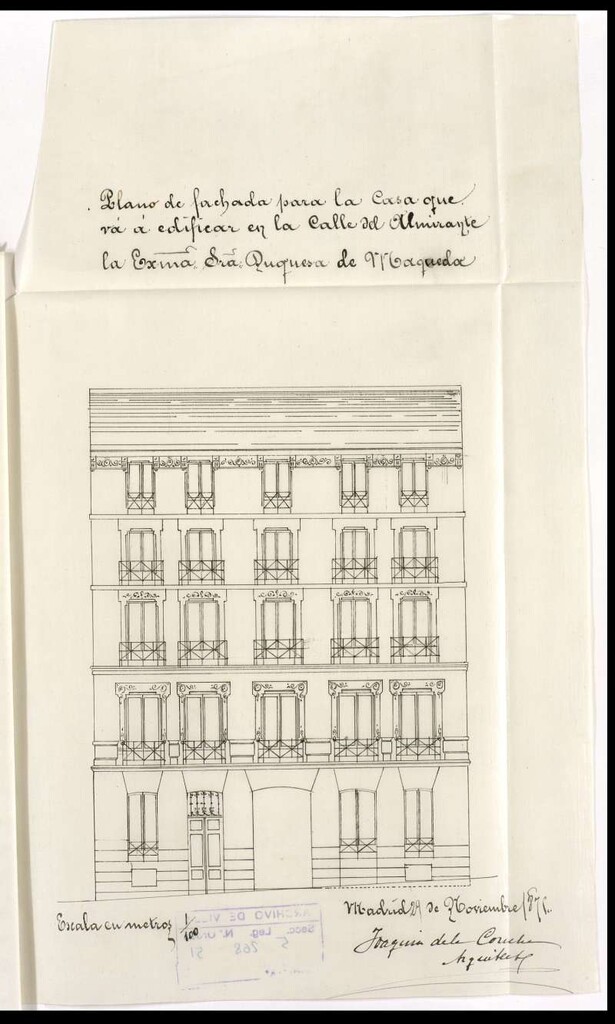 Plano de fachada para la Casa que
vá á edificar en la Calle del Almirante
la Exma. Sra. Duquesa de Maqueda
Escala en metros 1/100
Madrid 29 de Noviembre 187
Joaquin de la Concha
Arquitecto
ARCHIVO DE VILLA
Secc. Leg. N.
5 268 51